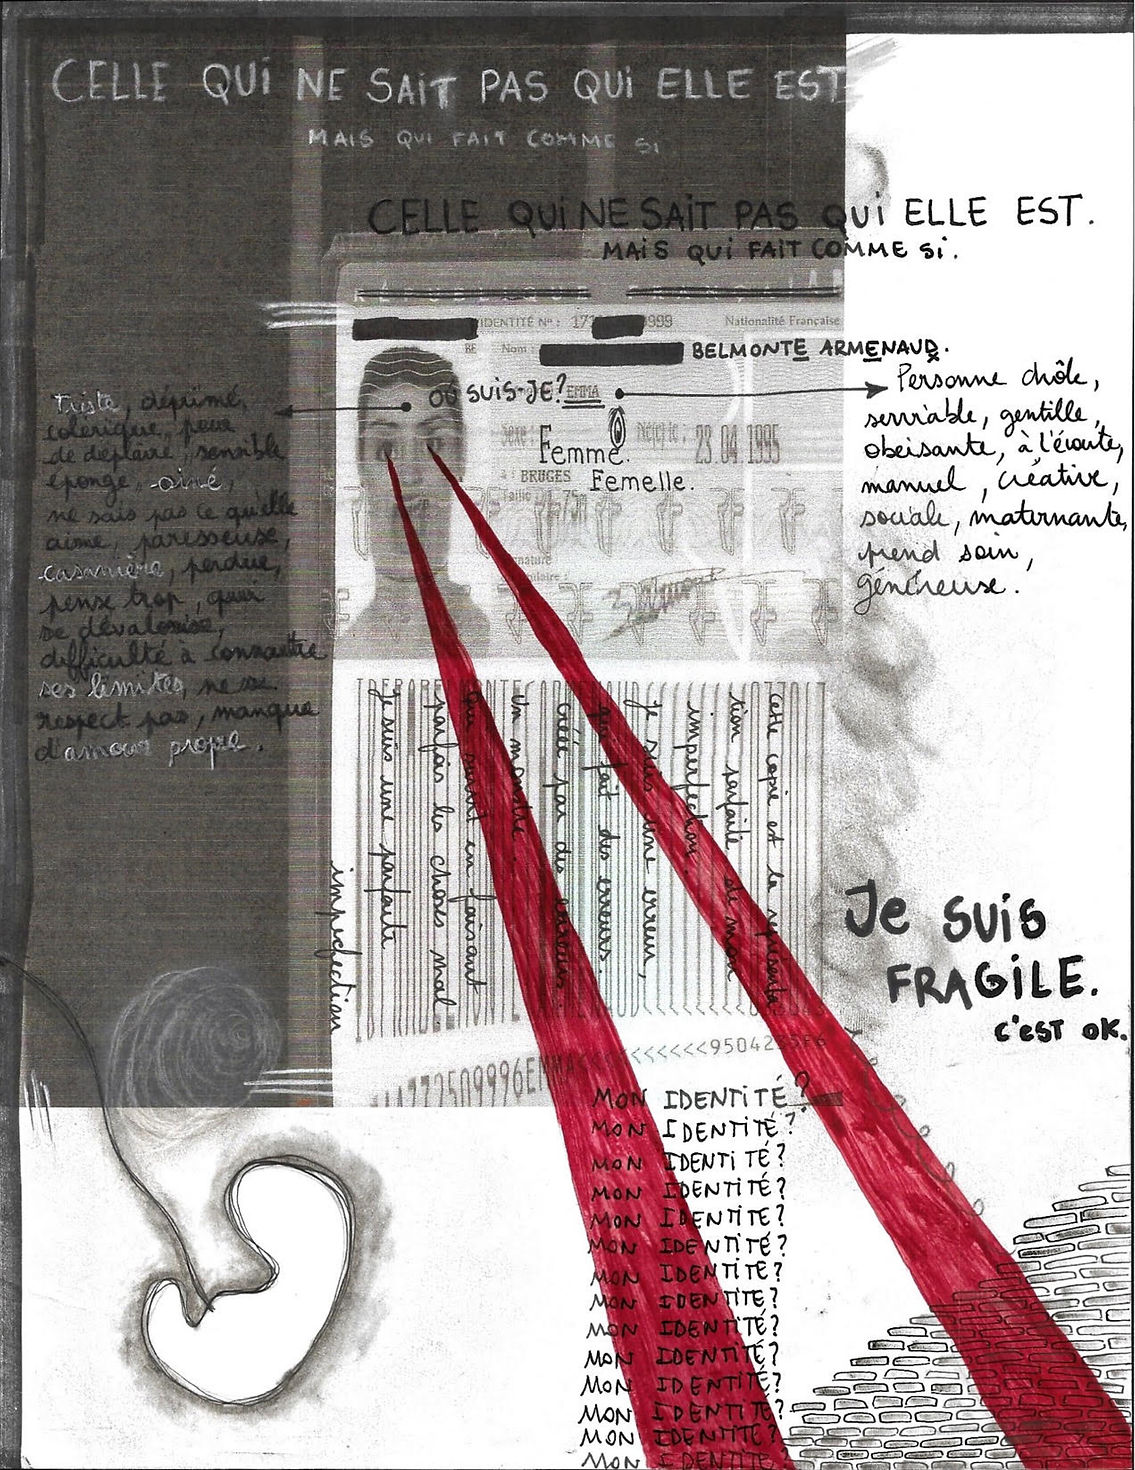 CELLE QUI NE SAIT PAS QUI ELLE EST
MAIS QUI FAIT COMME SI
CELLE QUI NE SAIT PAS QUI ELLE EST.
MAIS QUI FAIT COMME SI.
IDENTITÉ Nº : 171 9999 Nationalité Française
Nom : BELMONTE ARMENAUD.
OÙ SUIS-JE? EMMA
Sexe : Femme. Né(e) le : 23.04.1995
Femelle.
à : BRUGES
Taille : 1,75m
Triste, déprimé,
colérique, peur
de déplaire, sensible
éponge,
ne sais pas ce qu'elle
aime, paresseuse,
casanière, perdue,
pense trop, qui
se dévalorise,
difficulté à connaître
ses limites, ne se
respect pas, manque
d'amour propre.
Personne drôle,
serviable, gentille,
obeisante, à l'écoute,
manuel, créative,
sociale, maternante,
prend soin,
généreuse.
cette copie est la représenta
tion parfaite de mon
imperfection.
Je suis une erreur,
qui fait des erreurs.
créée par des erreurs.
Un monstre.
qui survit en faisant
parfois les choses mal
Je suis une parfaite
imperfection
Je suis
FRAGILE.
C'EST OK.
MON IDENTITÉ?
MON IDENTITÉ?
MON IDENTITÉ?
MON IDENTITÉ?
MON IDENTITE?
MON IDENTITÉ?
MON IDENTITE?
MON IDENTITE?
MON IDENTITÉ?
MON IDENTITÉ?
MON IDENTITÉ?
MON IDENTITÉ?
MON IDENTITÉ?
MON IDENTITE?